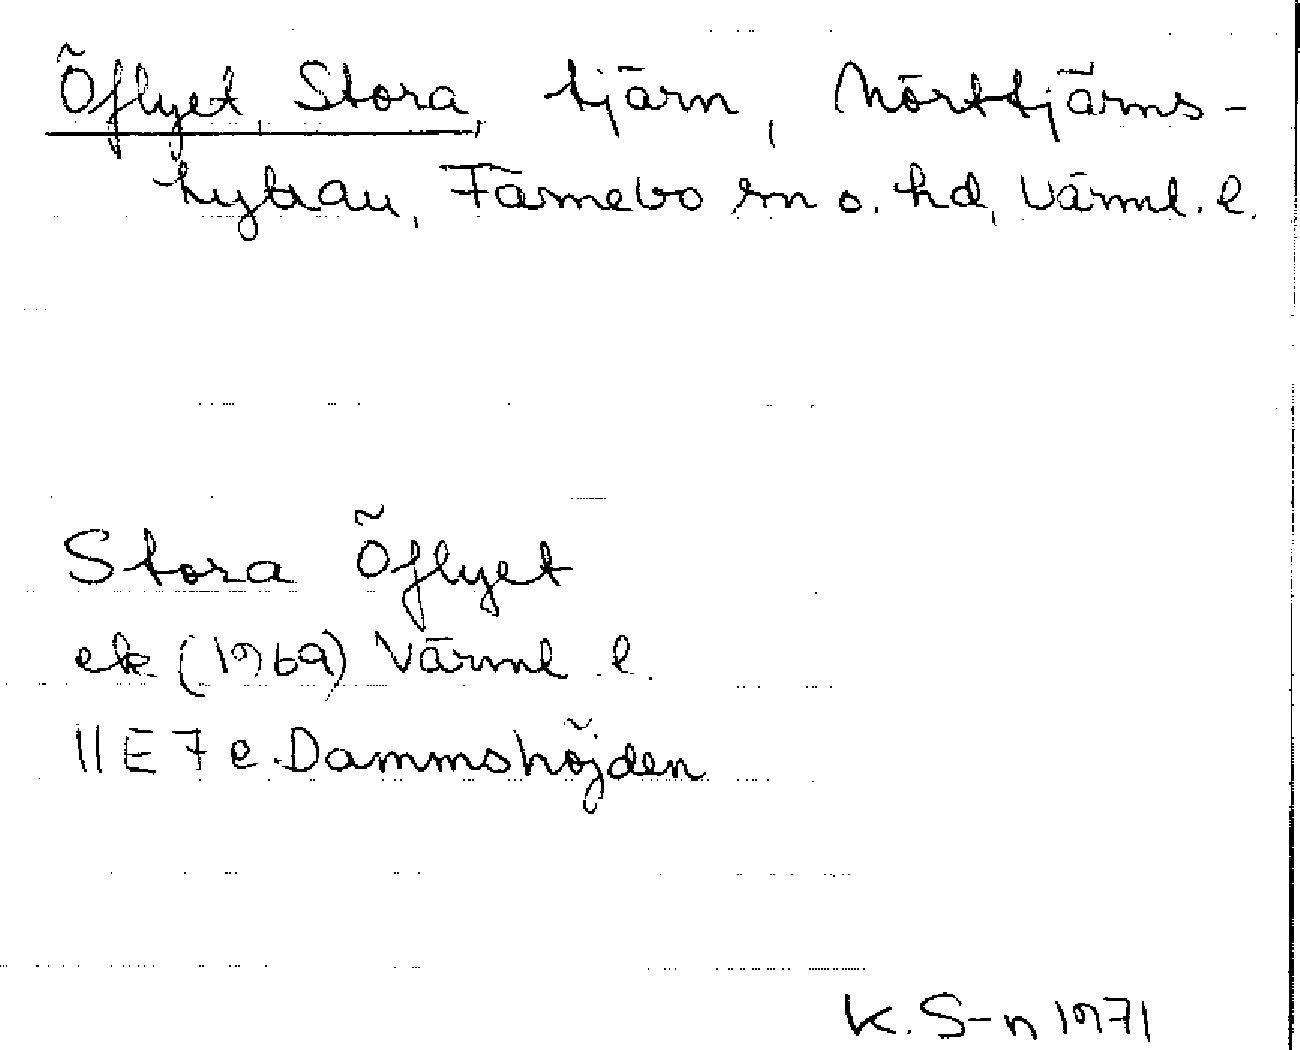 Öflyet, Stora, tjärn, Mörttjärns-
hyttan, Färnebo sn o. hd, Värml. l.
Stora Öflyet
ek (1969) Värml l.
11E 7e Dammshöjden
K. S-n 1971